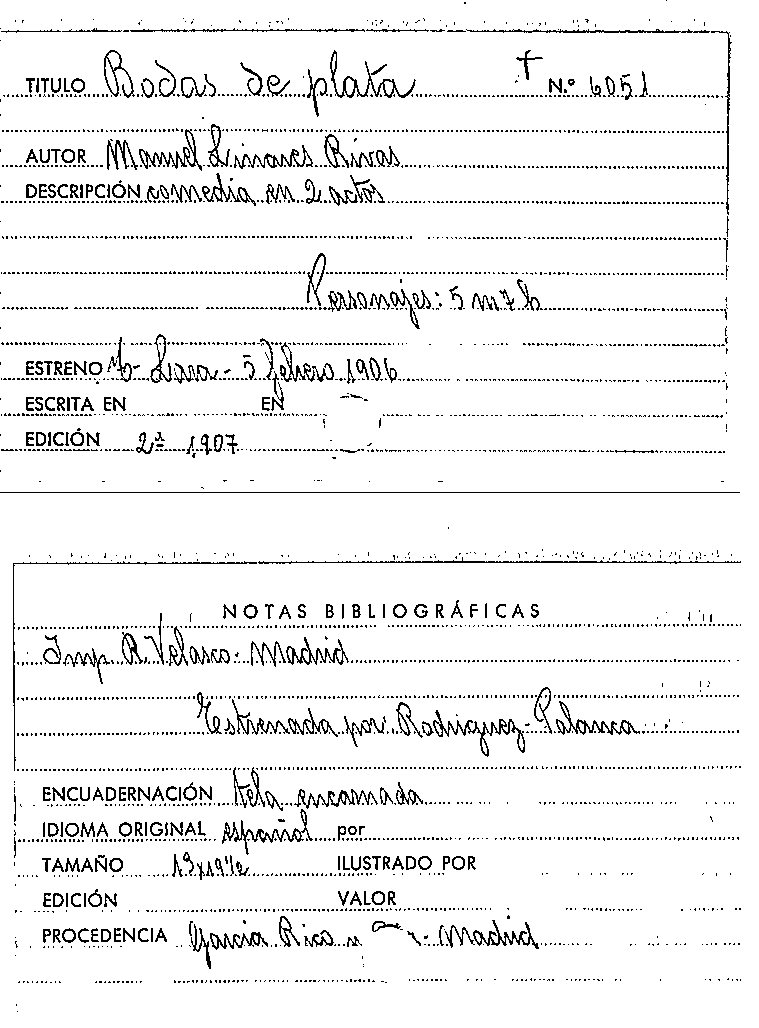 TITULO Bodas de plata † N.º 6051
AUTOR Manuel Linares Rivas
DESCRIPCIÓN comedia en 2 actos
Personajes: 5 m 7 h
ESTRENO Lara - 5 febrero 1906
ESCRITA EN EN
EDICIÓN 2ª 1907
NOTAS BIBLIOGRÁFICAS
Imp. R. Velasco - Madrid
Estrenada por: Rodriguez - Palanca
ENCUADERNACIÓN tela encarnada
IDIOMA ORIGINAL español por
TAMAÑO 13x19½ ILUSTRADO POR
EDICIÓN VALOR
PROCEDENCIA Garcia Rico - Madrid